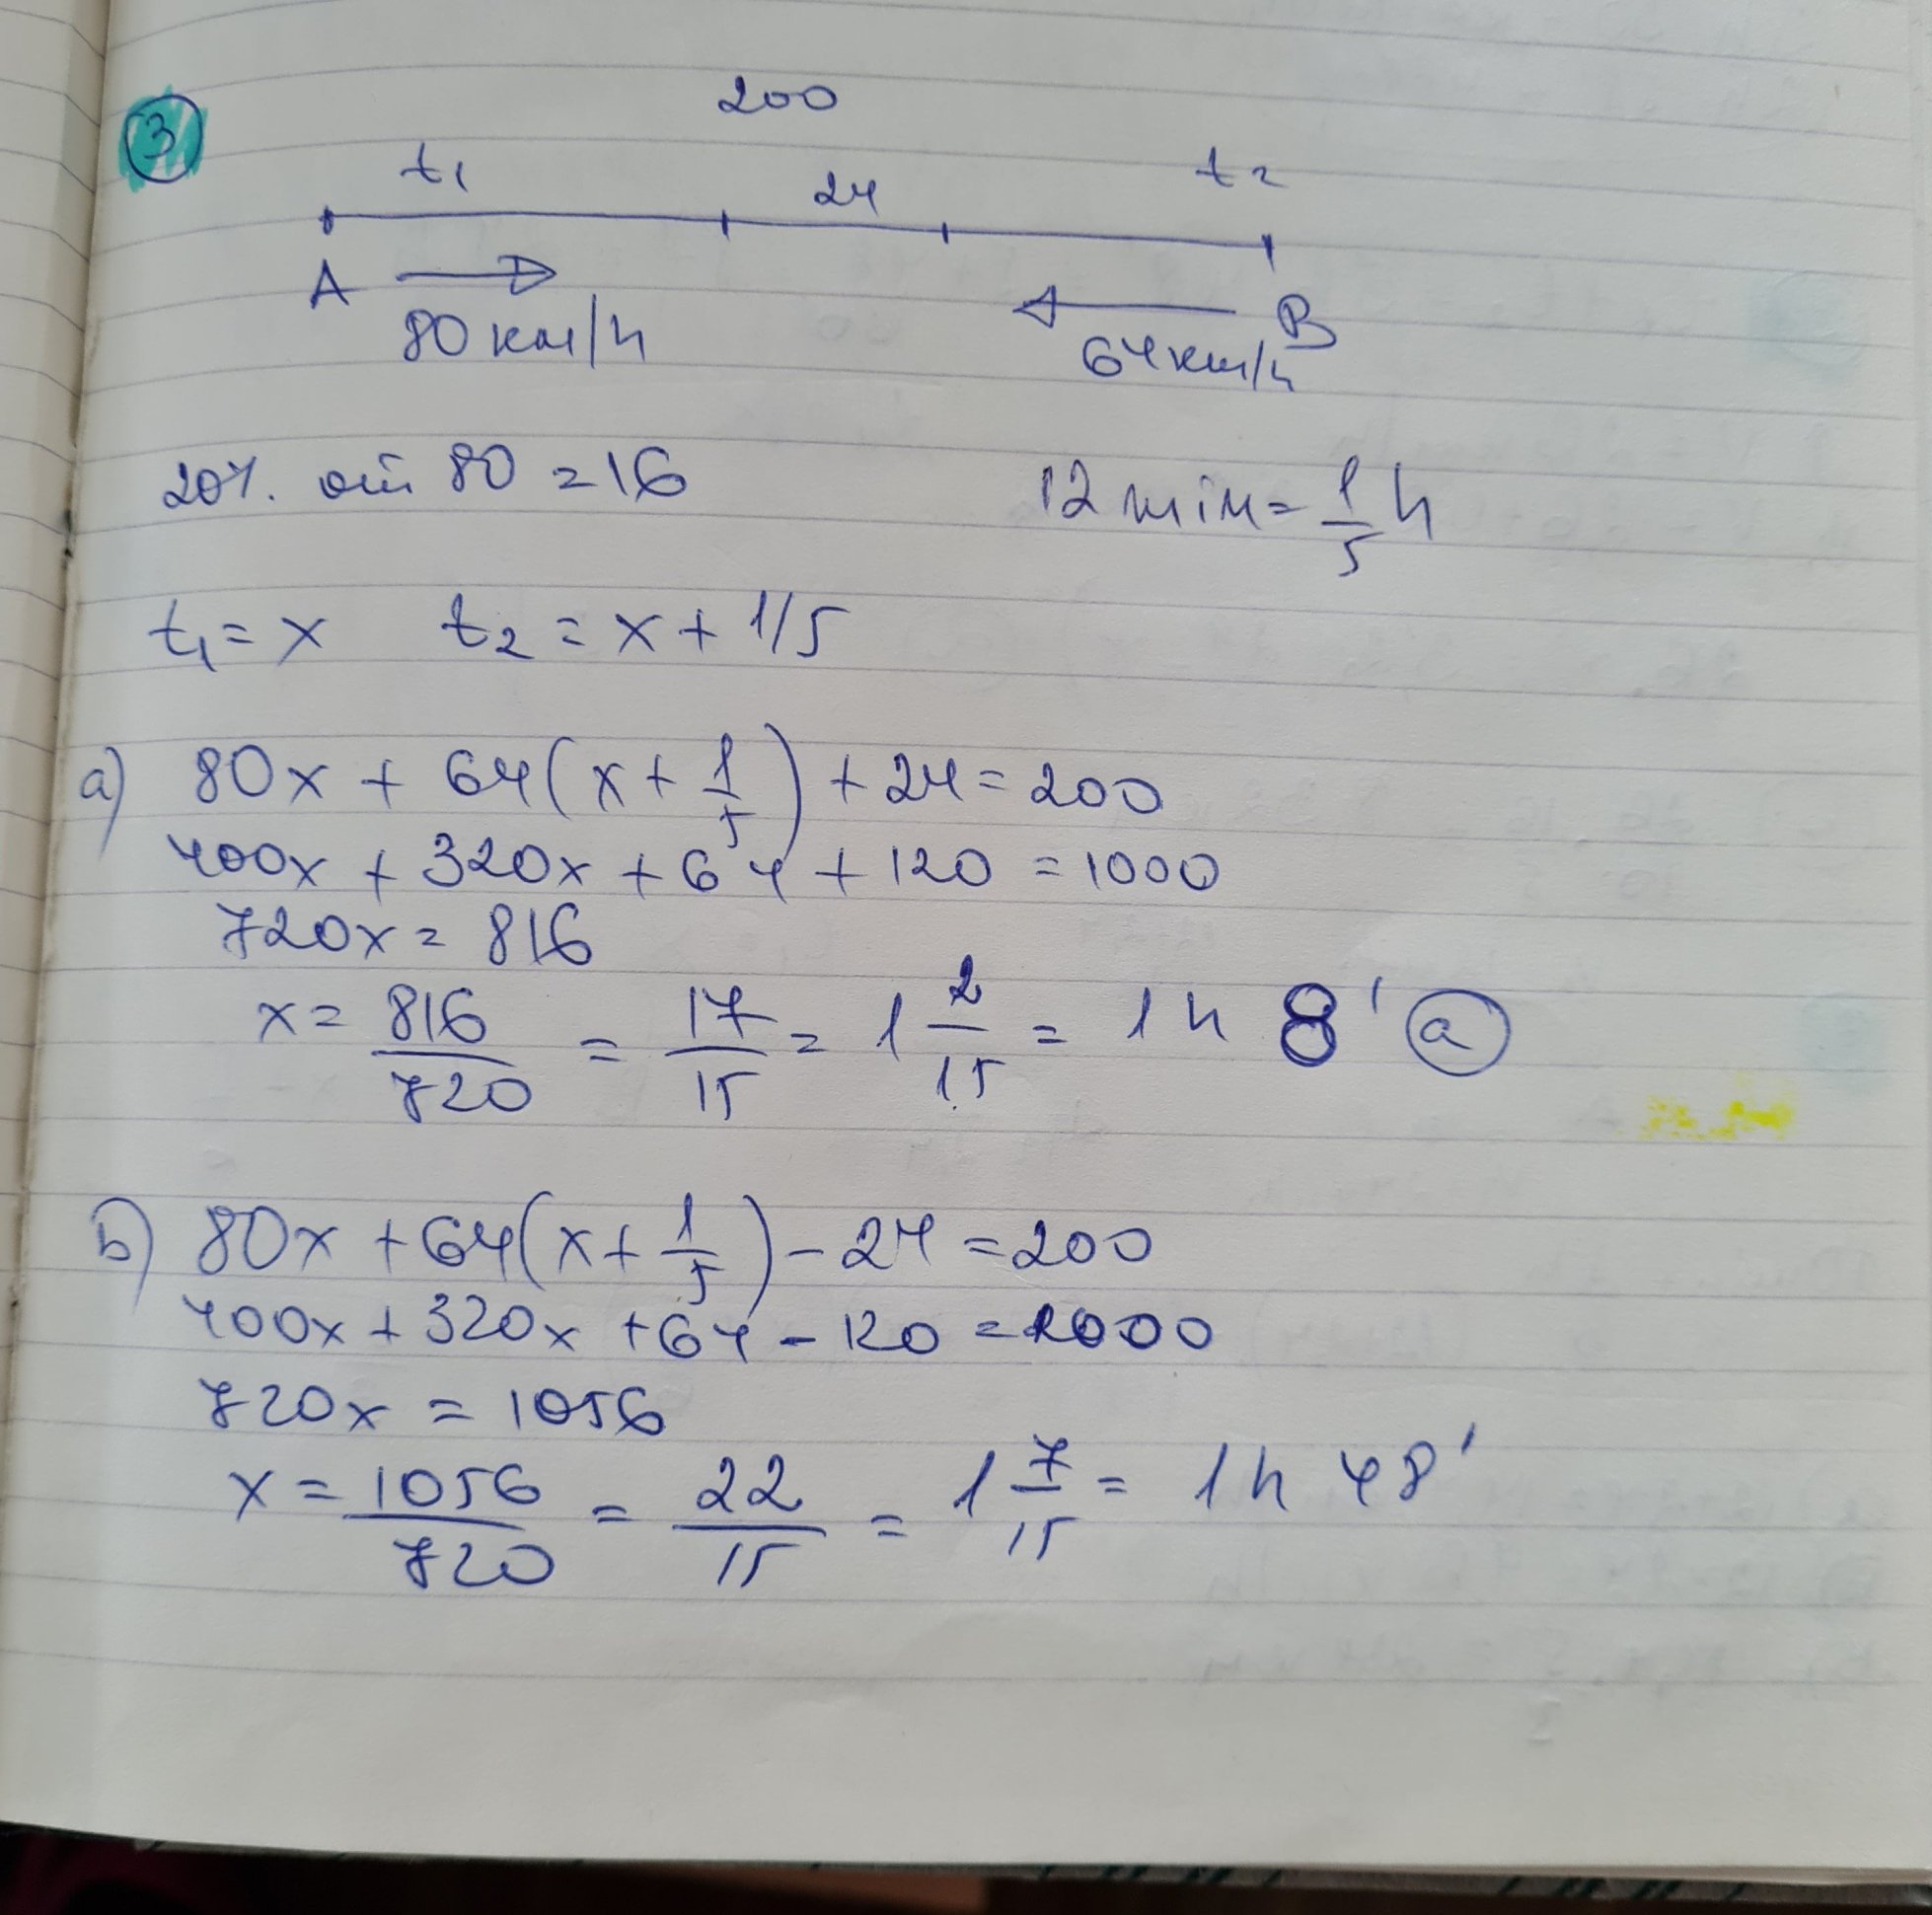 3
200
t₁ 24 t₂
A B
80 км/h 64км/h
20%. от 80 = 16 12 min = 1/5 h
t₁ = x t₂ = x + 1/5
a) 80x + 64(x + 1/5) + 24 = 200
400x + 320x + 64 + 120 = 1000
720x = 816
x = 816/720 = 17/15 = 1 2/15 = 1h 8' a
b) 80x + 64(x + 1/5) - 24 = 200
400x + 320x + 64 - 120 = 1000
720x = 1056
x = 1056/720 = 22/15 = 1 7/15 = 1h 48'